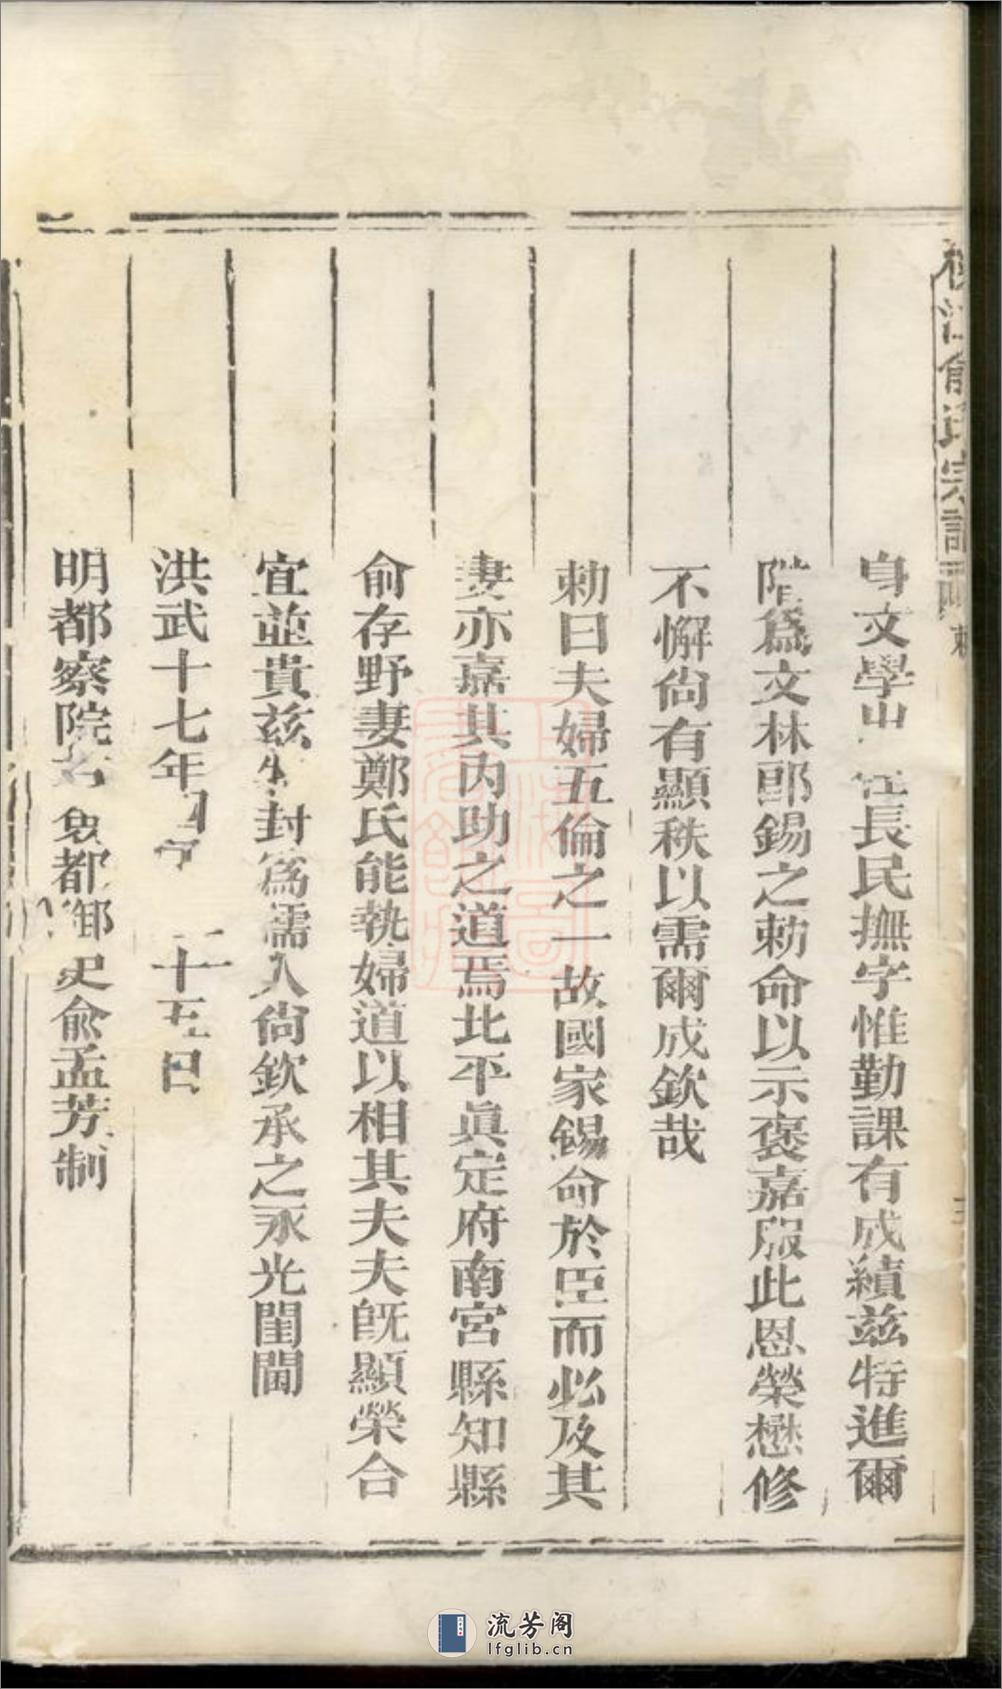 身文學出任長民撫字惟勤課有成績兹特進爾
階爲文林郎錫之勅命以示褒嘉服此恩榮懋修
不懈尙有顯秩以需爾成欽哉
勅曰夫婦五倫之一故國家錫命於臣而必及其
妻亦嘉其內助之道焉北平眞定府南宮縣知縣
俞存野妻鄭氏能執婦道以相其夫夫旣顯榮合
宜並貴兹特封爲孺人尙欽承之永光閨閫
洪武十七年四 十五日
明都察院右僉都御史俞孟芳制
江俞氏宗譜
流芳阁
lfglib.cn